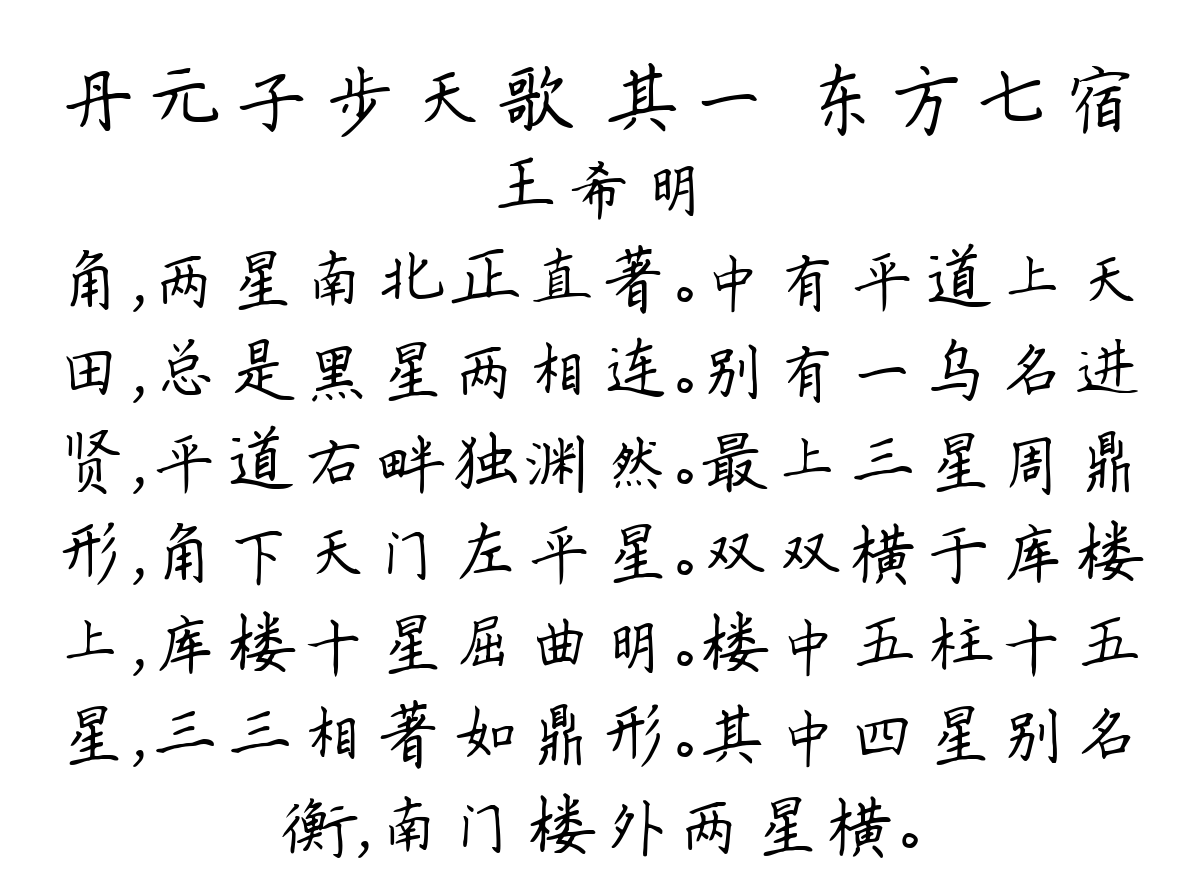 丹元子步天歌 其一 东方七宿
王希明
角,两星南北正直著。中有平道上天
田,总是黑星两相连。别有一乌名进
贤,平道右畔独渊然。最上三星周鼎
形,角下天门左平星。双双横于库楼
上,库楼十星屈曲明。楼中五柱十五
星,三三相著如鼎形。其中四星别名
衡,南门楼外两星横。